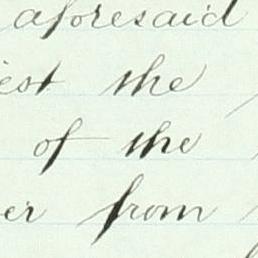 aforesaid
the
of the
from